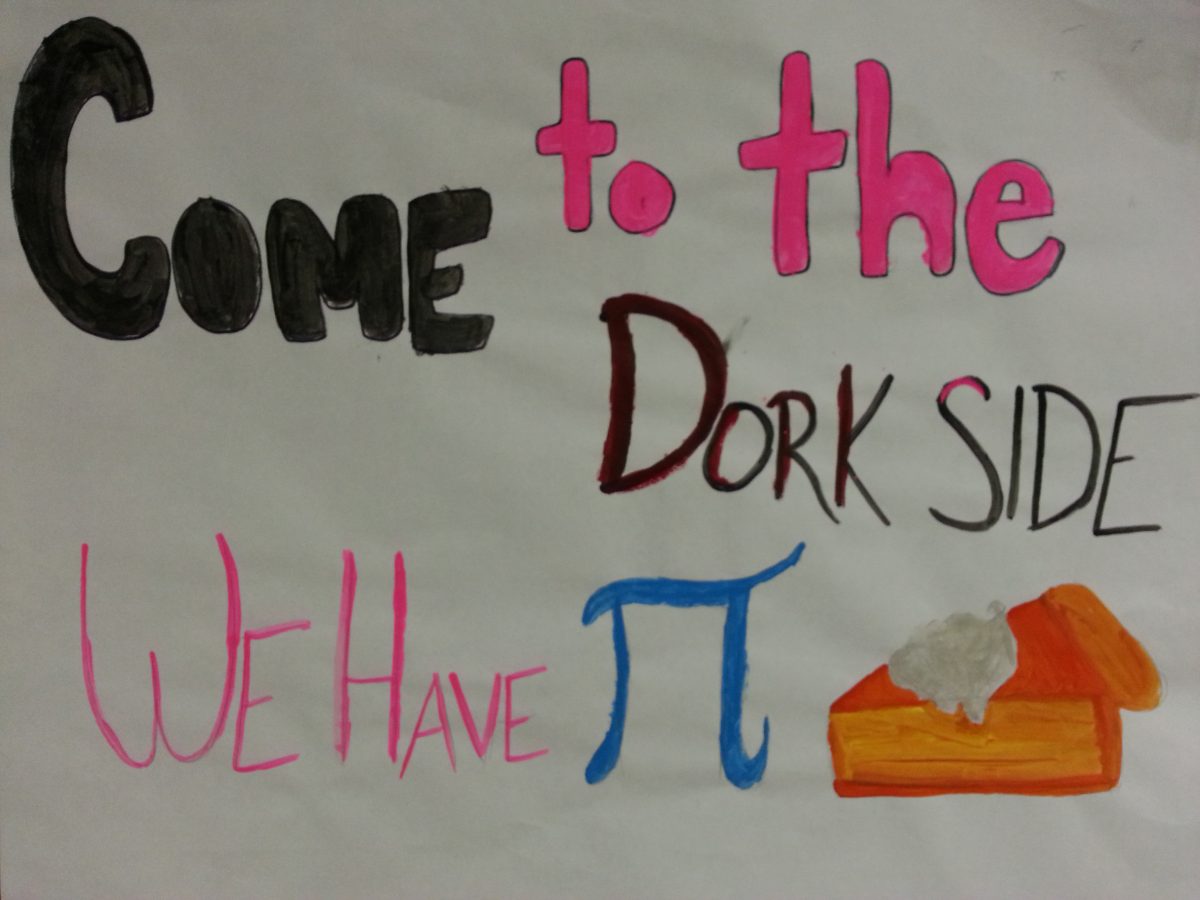 COME to the
DORK SIDE
WE HAVE π